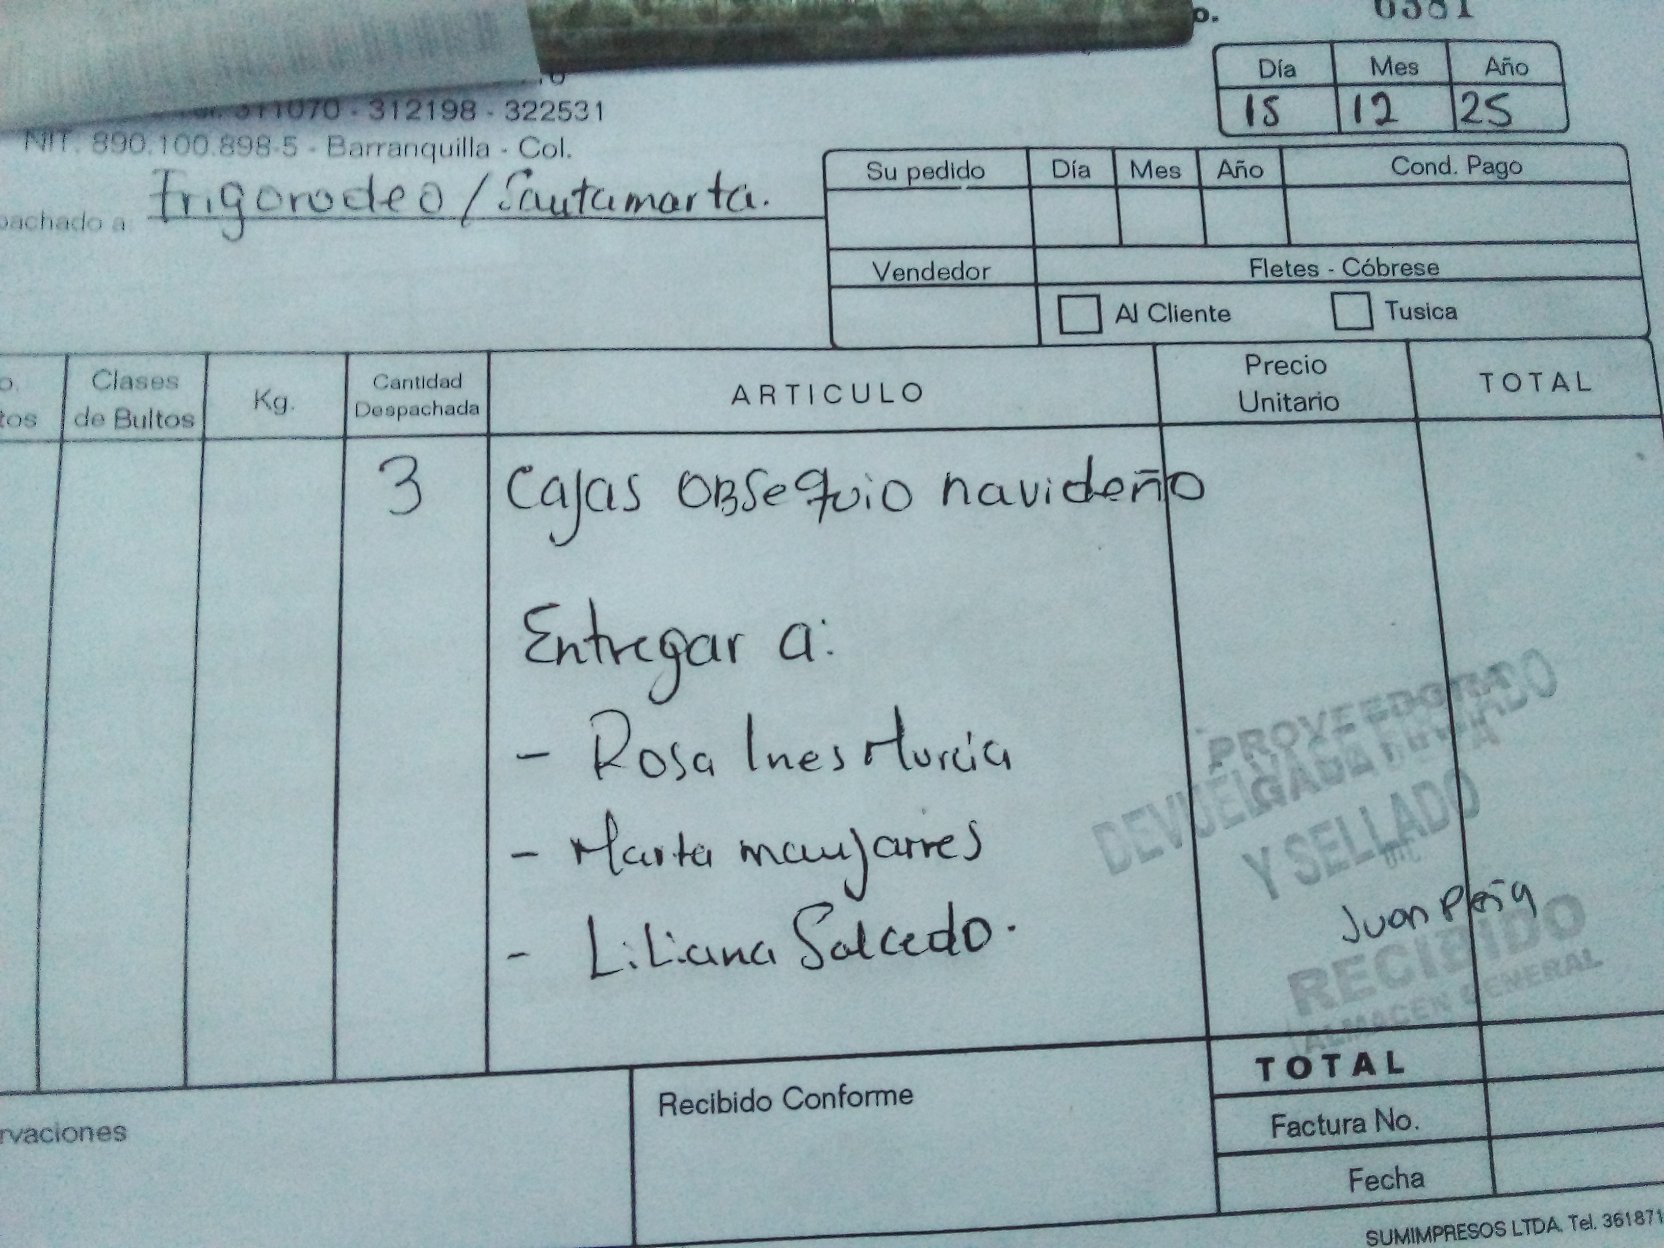 6381
Día Mes Año
15 12 25
311070 - 312198 - 322531
NIT. 890.100.898-5 - Barranquilla - Col.
pachado a: Frigorodeo / Santamarta.
Su pedido Día Mes Año Cond. Pago
Vendedor Fletes - Cóbrese
Al Cliente Tusica
Clases de Bultos Kg. Cantidad Despachada ARTICULO Precio Unitario TOTAL
3 Cajas OBSequio navideño
Entregar a:
- Rosa Ines Murcia
- Marta manjarres
- Liliana Salcedo.
PROVEEDORA
DEVUELVASE
Y SELLADO
Juan
RECIBIDO
ALMACEN GENERAL
TOTAL
Recibido Conforme
Factura No.
rvaciones
Fecha
SUMIMPRESOS LTDA. Tel. 361871